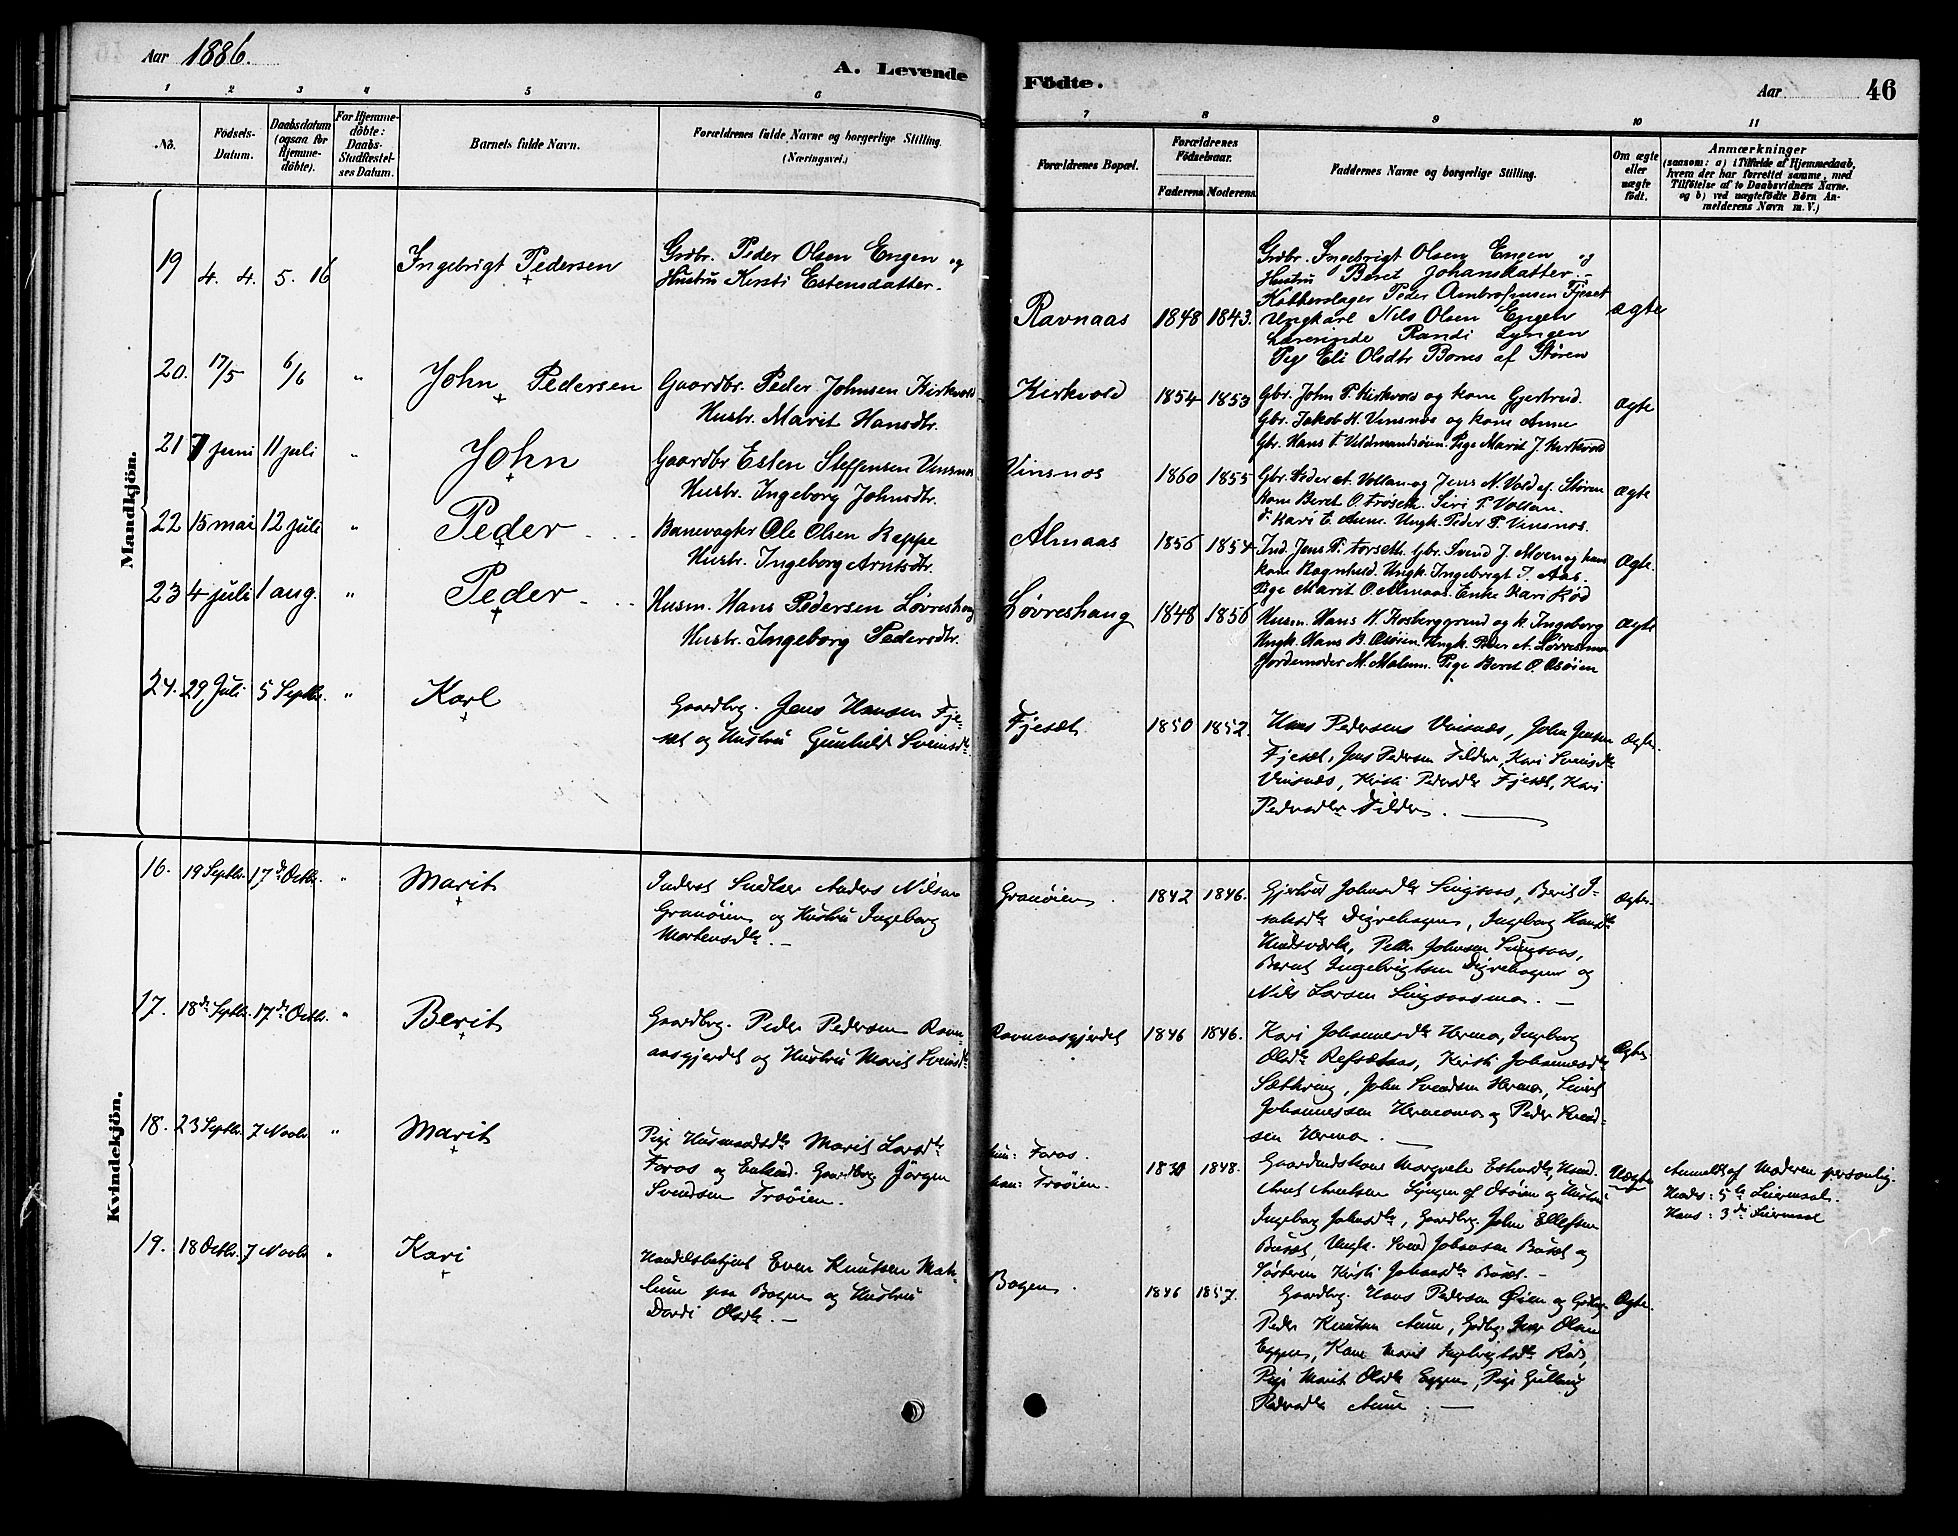 Aar 1886.
A. Levende Födte.
Aar 46
1 2 3 4 5 6 7 8 9 10 11
No.
Fødsels-Datum.
Daabsdatum (ogsaa for Hjemmedöbte).
For Hjemmedöbte: Daabs-Stadfæstelses Datum.
Barnets fulde Navn.
Forældrenes fulde Navne og borgerlige Stilling. (Næringsvei.)
Forældrenes Bopæl.
Forældrenes Födselsaar.
Faderens. Moderens.
Faddernes Navne og borgerlige Stilling.
Om ægte eller uægte født.
Anmærkninger
(saasom: a) i Tilfælde af Hjemmedaab,
hvem der har forrettet samme, med
Tilföielse af to Daabsvidners Navne.
og b) ved uægtefödte Börn An-
melderens Navn m. V.)
Mandkjön.
19 4. 4. 5. 16 Ingebrigt Pedersen
Grdbr. Peder Olsen Engen og
Hustru Kersti Estensdatter.
Ravnaas 1848 1843.
Grdbr. Ingebrigt Olsen Engen og
Hustru Beret Johansdatter.
Kobberslager Peder Ambrosiussen Fjeset
Ungkarl Nils Olsen Engen
Lærerinde Randi Lyngen
Pige Eli Olsdtr Bones af Støren
ægte
20. 17/5 6/6 " John Pedersen
Gaardbr. Peder Johnsen Kirkvold
Hustr. Marit Hansdtr.
Kirkvold 1854 1853
Gbr. John P. Kirkvold og kone Gjertrud.
Gbr. Jakob H. Vinsnes og kone Anne
Gbr. Hans T. Veldmandsøien. Pige Marit J. Kirkvold
ægte
21 7 Juni 11 juli " John
Gaardbr Esten Steffensen Vinsnes
Hustr. Ingeborg Johnsdtr.
Vinsnes 1860 1855
Gbr. Peder A. Vollan og Jens N. Vold af Støren
kone Beret O. Trøseth. Siri P. Vollan.
Kari E. Aune. Ungk. Peder P. Vinsnes.
ægte
22 15 mai 12 juli " Peder
Banevagter Ole Olsen Keppe
Hustr. Ingeborg Arntsdtr.
Almaas 1856 1854
Ind. Jens P. Forseth. Gbr. Svend J. Moen og kone
kone Ragnhild. Ungk. Ingebrigt I. Aas.
Pige Marit O. Almaas. Enke Kari Rød
ægte.
23 4 juli 1 aug. " Peder
Husm. Hans Pedersen Løvreshaug
Hustr. Ingeborg Pedersdtr.
Løvreshaug 1848 1856
Husm. Hans N. Kosberggrind og k. Ingeborg
Ungk. Hans B. Osøien. Ungk. Peder A. Løvresmo
Jordemoder M. Malum. Pige Beret O. Osøien
ægte
24. 29 Juli 5 Septbr. " Karl
Gaardbrg. Jens Hansen Fje-
sæt og Hustru Gunhild Svensdtr.
Fjesæt 1850 1852.
Hans Pedersens Vinsnæs, John Jensen
Fjesæt, Jens Pedersen Filder, Kari Svensdtr
Vinsnæs, Kirsti Pedersdtr Fjesæt, Kari
Pedersdtr Filder.
Ægte.
Kvindekjön.
16. 19 Septbr. 17de Octbr. " Marit
Inderst Anders Nilsen
Granøien og Hustru Ingeborg
Mortensdtr.
Granøien. 1842 1846.
Gjertrud Johnsdtr Singsaas, Berit I-
saksdtr Digrehagen, Ingeborg Hansdtr
Peder Johnsen Singsaas,
Bernt Ingebrigtsen Digrehagen og
Nils Larsen Singsaasmo.
Ægte.
17. 18de Septbr. 17de Octbr. " Berit
Gaardbrg. Peder Pedersen Ravn-
aasgjerdet og Hustru Marit Svensdtr
Ravnaasgjerdet 1846 1846.
Kari Johannesdtr Hermo, Ingeborg
Olsdtr Refsetaas, Kirsti Johannesdtr
Sætkring, John Svendsen Hermo, Sivert
Johannessen Hermomo og Peder Svend-
sen Hermo.
Ægte
18. 23 Septbr. 7 Novbr. " Marit
Pige Husmandsdtr Marit Larsdtr
Foros og Enkem. Gaardbrg Jörgen
Svendsen Troöien.
hun: Foros.
han: Troöien.
1831 1848.
Gaardmdskone Margrete Estensdtr, Husmd.
Arnt Arntsen Lyngen af Osøien og Hustru
Ingeborg Johnsdtr, Gaardbrg. John Ellefsen
Busæt, Ungk. Svend Johansen Busæt og
Søsteren Kirsti Johansdtr Busæt.
Uægte
Anmeldt af Moderen personlig.
Hendes: 5te Leiermaal.
Hans: 3die Leiermaal
19. 18 Octbr. 7 Novbr " Kari
Handelsbetjent Even Knutsen Mah-
lum paa Bogen og Hustru
Dordi Olsdtr.
Bogen. 1846 1857.
Gaardbrg. Hans Pedersen Øien og Gdbrg.
Peder Knutsen Aune, Gdbrg. Jens Olsen
Eggen, Kone Marit Ingebrigtsdtr Röd,
Pige Marit Olsdtr Eggen, Pige Gulborg
Pedersdtr Aune.
Ægte.